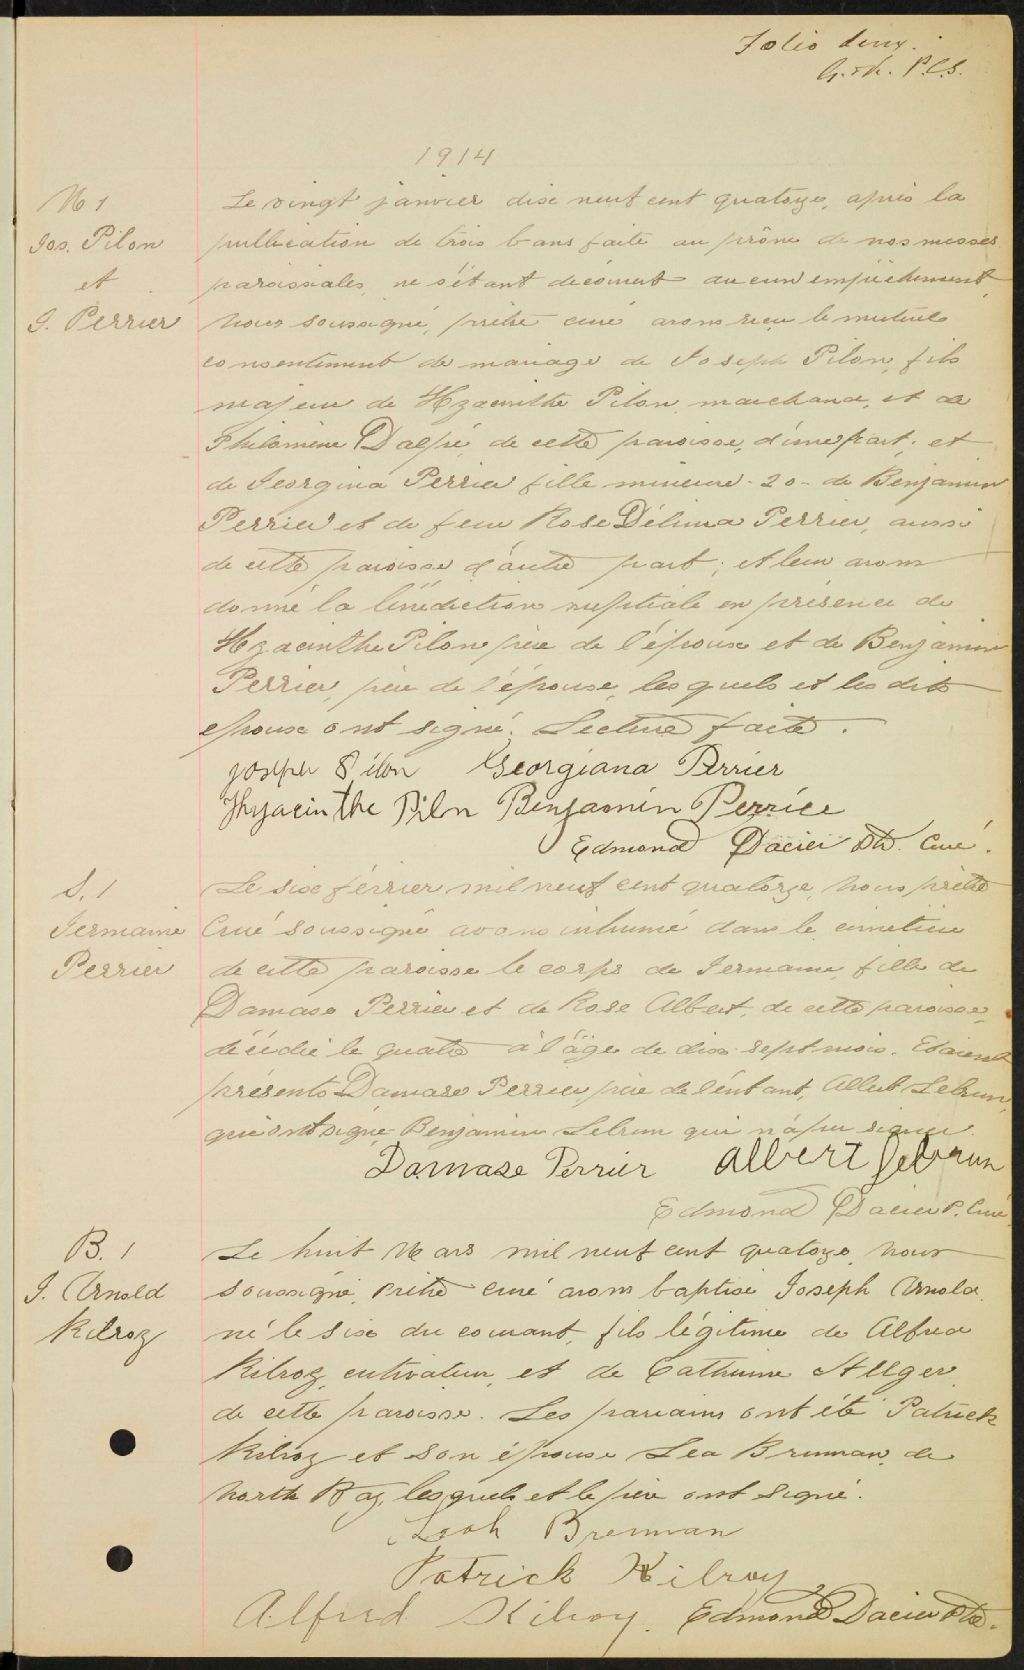 Folio deux.
P.C.S.
1914
No 1
Jos. Pilon
et
G. Perrier
Le vingt janvier dix neuf cent quatorze, après la
publication de trois bans faite au prône de nos messes
paroissiales, ne s'étant découvert aucun empêchement,
nous soussigné, prêtre curé avons reçu le mutuel
consentement de mariage de Joseph Pilon, fils
majeur de Hyacinthe Pilon, marchand, et de
Philomène Dalpé, de cette paroisse, d'une part; et
de Georgina Perrier fille mineure - 20 - de Benjamin
Perrier et de feue Rose Délima Perrier, aussi
de cette paroisse d'autre part; et leur avons
donné la bénédiction nuptiale en présence de
Hyacinthe Pilon père de l'époux et de Benjamin
Perrier, père de l'épouse, lesquels et les dits
époux ont signé. Lecture faite.
Joseph Pilon Georgiana Perrier
Hyacinthe Pilon Benjamin Perrier
Edmond Dacier Ptr. Curé.
S. 1
Germaine
Perrier
Le six février mil neuf cent quatorze, nous prêtre
Curé soussigné avons inhumé dans le cimetière
de cette paroisse le corps de Germaine, fille de
Damase Perrier et de Rose Albert, de cette paroisse,
décédée le quatre à l'âge de dix sept mois. Etaient
présents Damase Perrier, père de l'enfant, Albert Lebrun,
qui ont signé, Benjamin Lebrun qui n'a pu signer.
Damase Perrier Albert Lebrun
Edmond Dacier P. Curé.
B. 1
J. Arnold
Kilroy
Le huit Mars mil neuf cent quatorze, nous
soussigné, prêtre curé avons baptisé Joseph Arnold
né le six du courant, fils légitime de Alfred
Kilroy, cultivateur, et de Catherine
de cette paroisse. Les parrains ont été Patrick
Kilroy et son épouse Lea Brennan, de
North Bay, lesquels et le père ont signé.
Leah Brennan
Patrick Kilroy
Alfred Kilroy. Edmond Dacier Ptr.